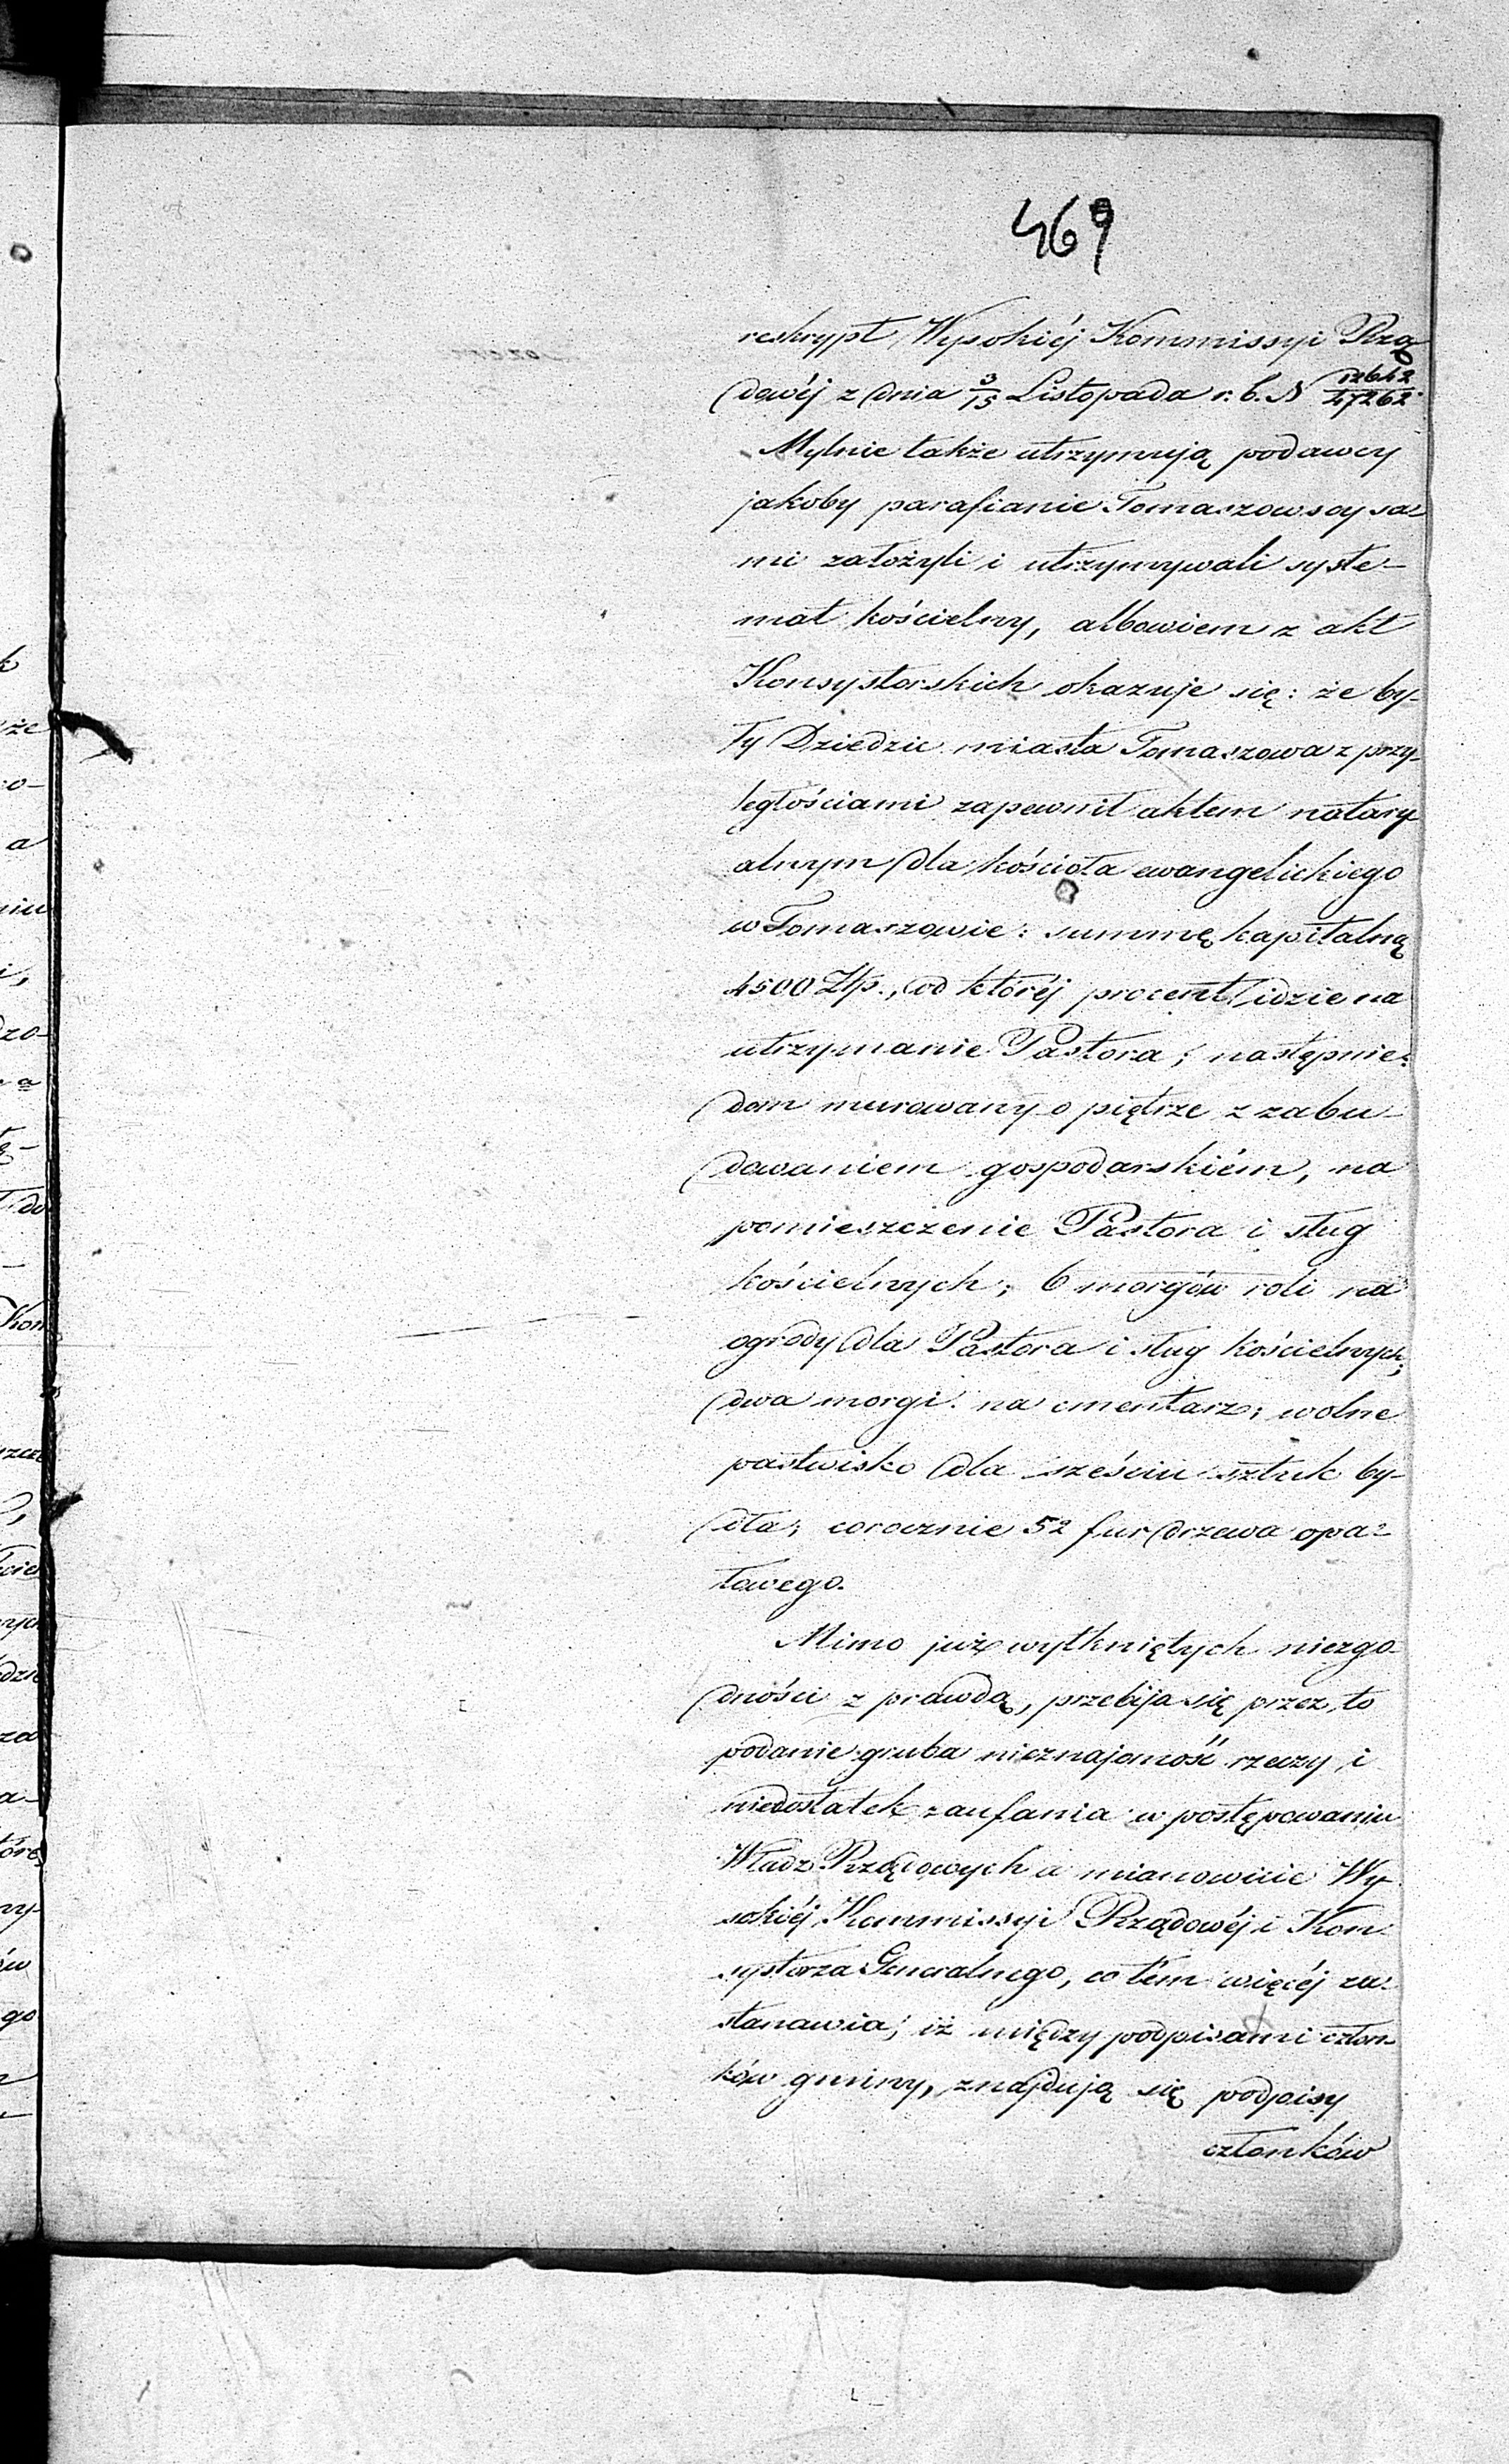 469
reskrypt Wysokiéj Kommissyi Rzą
dowéj z dnia 3/15 Listopada r. b. N 12642/47262.
Mylnie także utrzymują podawcy
jakoby parafianie Tomaszowscy sa-
mi założyli i utrzymywali syste-
mat kościelny, albowiem z akt
Konsystorskich okazuje się: że by-
ły Dziedzic miasta Tomaszowa z przy-
ległościami zapewnił aktem notary
alnym dla kościoła ewangelickiego
w Tomaszowie: summę kapitalną
4500 Złp., od któréj procent idzie na
utrzymanie Pastora; następnie:
dom murowany o piętrze z zabu-
dowaniem gospodarskiém, na
pomieszczenie Pastora i sług
kościelnych; 6 morgów roli na
ogrody dla Pastora i sług kościelnych;
dwa morgi na cmentarz; wolne
pastwisko dla sześciu sztuk by-
dła; corocznie 52 fur drzewa opa-
łowego.
Mimo już wytkniętych niezgo-
dności z prawdą, przebija się przez to
podanie gruba nieznajomość rzeczy i
niedostatek zaufania w postępowaniu
Władz Rządowych a mianowicie Wy
sokiéj Kommissyi Rządowéj i Kon-
systorza Generalnego, co tém więcéj za-
stanawia; iż między podpisami człon
ków gminy, znajdują się podpisy
członków
k
że
o-
a
niu
i,
dzo-
a
ę-
do
Kon
szcze
ciel
nych
dzie
za
a-
tóre
ny-
ów
go